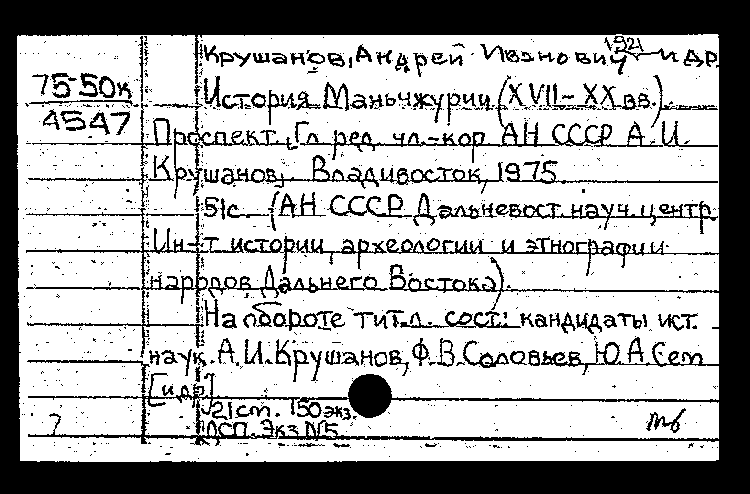 Крушанов, Андрей Иванович 1921 и др
75-50к
История Маньчжурии (XVII-XX вв.).
4547
Проспект. Гл ред чл.-кор АН СССР А.И.
Крушанов. Владивосток, 1975.
51с. (АН СССР Дальневост. науч. центр.
Ин-т истории, археологии и этнографии
народов Дальнего Востока).
На обороте тит.л. сост: кандидаты ист.
наук. А.И.Крушанов, Ф.В.Соловьев, Ю.А.Сем
[и др]
21 ст. 150 экз.
ДСП. Экз N5.